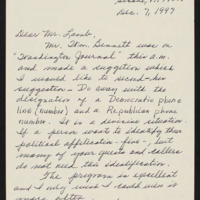 Dec. 7, 1997
Dear Mr. Lamb,
Mr. Bennett was on
"Washington Journal" this a.m.
and made a suggestion which
I would like to second - his
suggestion - Do away with the
designation of a Democratic phone
line (number) and a Republican phone
number. It is a divisive situation.
If a person want to identify their
political affiliation - fine -, but
many of your guests and callers
do not need this identification.
The program is excellent
and I only wish I could view it
more often